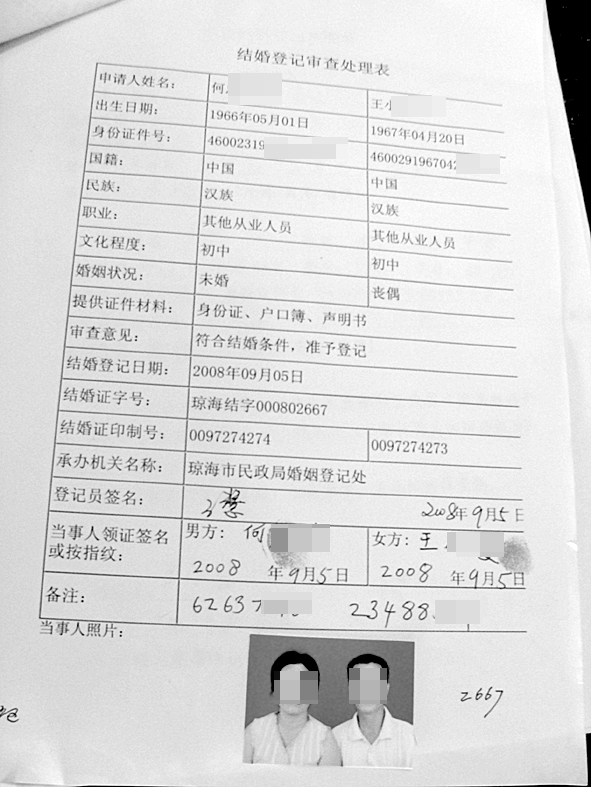 结婚登记审查处理表
申请人姓名： 何 王小
出生日期： 1966年05月01日 1967年04月20日
身份证件号： 46002319 4600291967042
国籍： 中国 中国
民族： 汉族 汉族
职业： 其他从业人员 其他从业人员
文化程度： 初中 初中
婚姻状况： 未婚 丧偶
提供证件材料： 身份证、户口簿、声明书
审查意见： 符合结婚条件，准予登记
结婚登记日期： 2008年09月05日
结婚证字号： 琼海结字000802667
结婚证印制号： 0097274274 0097274273
承办机关名称： 琼海市民政局婚姻登记处
登记员签名： 2008年9月5日
当事人领证签名 男方： 何 女方： 王
或按指纹： 2008年9月5日 2008年9月5日
备注： 62637 23488
当事人照片：
2667